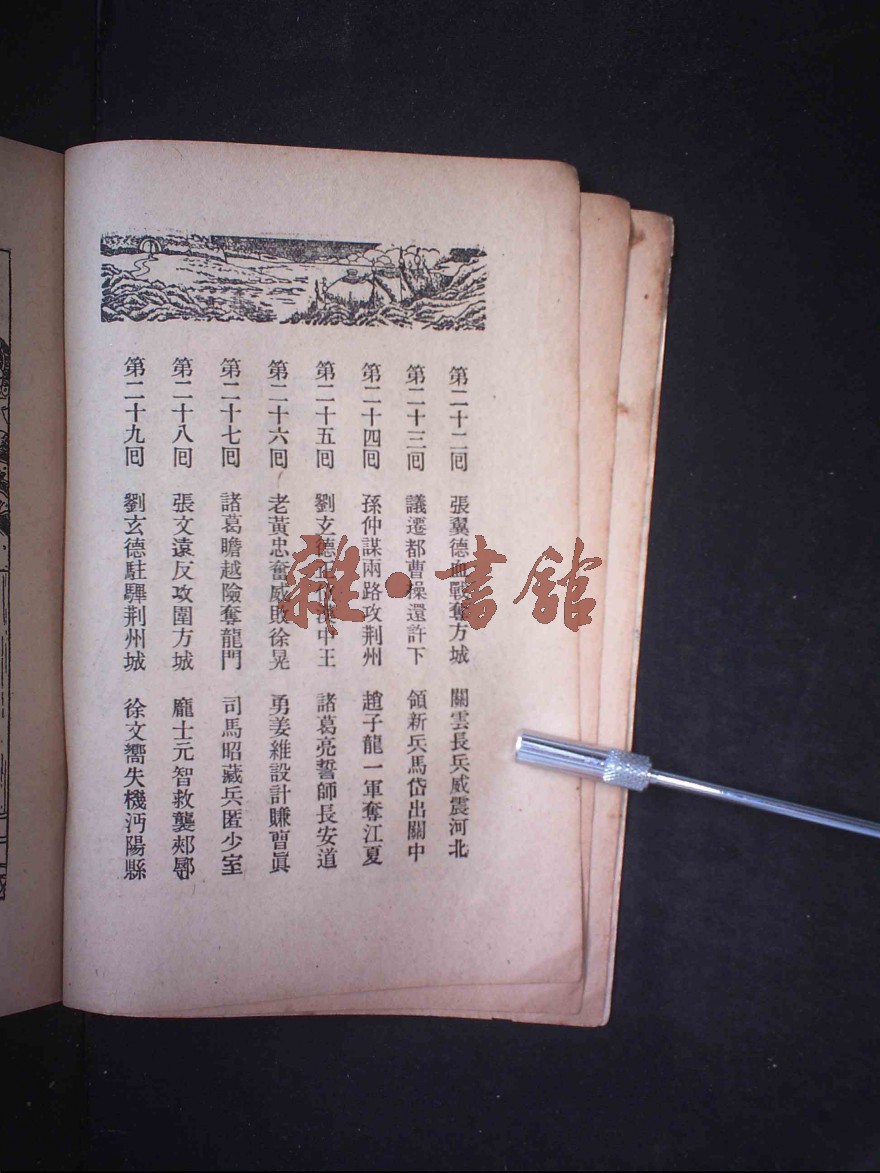 第二十二回 張翼德血戰奪方城 關雲長兵威震河北
第二十三回 議遷都曹操還許下 領新兵馬岱出關中
第二十四回 孫仲謀兩路攻荆州 趙子龍一軍奪江夏
第二十五回 劉玄德正位漢中王 諸葛亮誓師長安道
第二十六回 老黃忠奮威敗徐晃 勇姜維設計賺曹眞
第二十七回 諸葛瞻越險奪龍門 司馬昭藏兵匿少室
第二十八回 張文遠反攻圍方城 龐士元智救襲郟鄏
第二十九回 劉玄德駐驆荆州城 徐文嚮失機沔陽縣
雜·書館